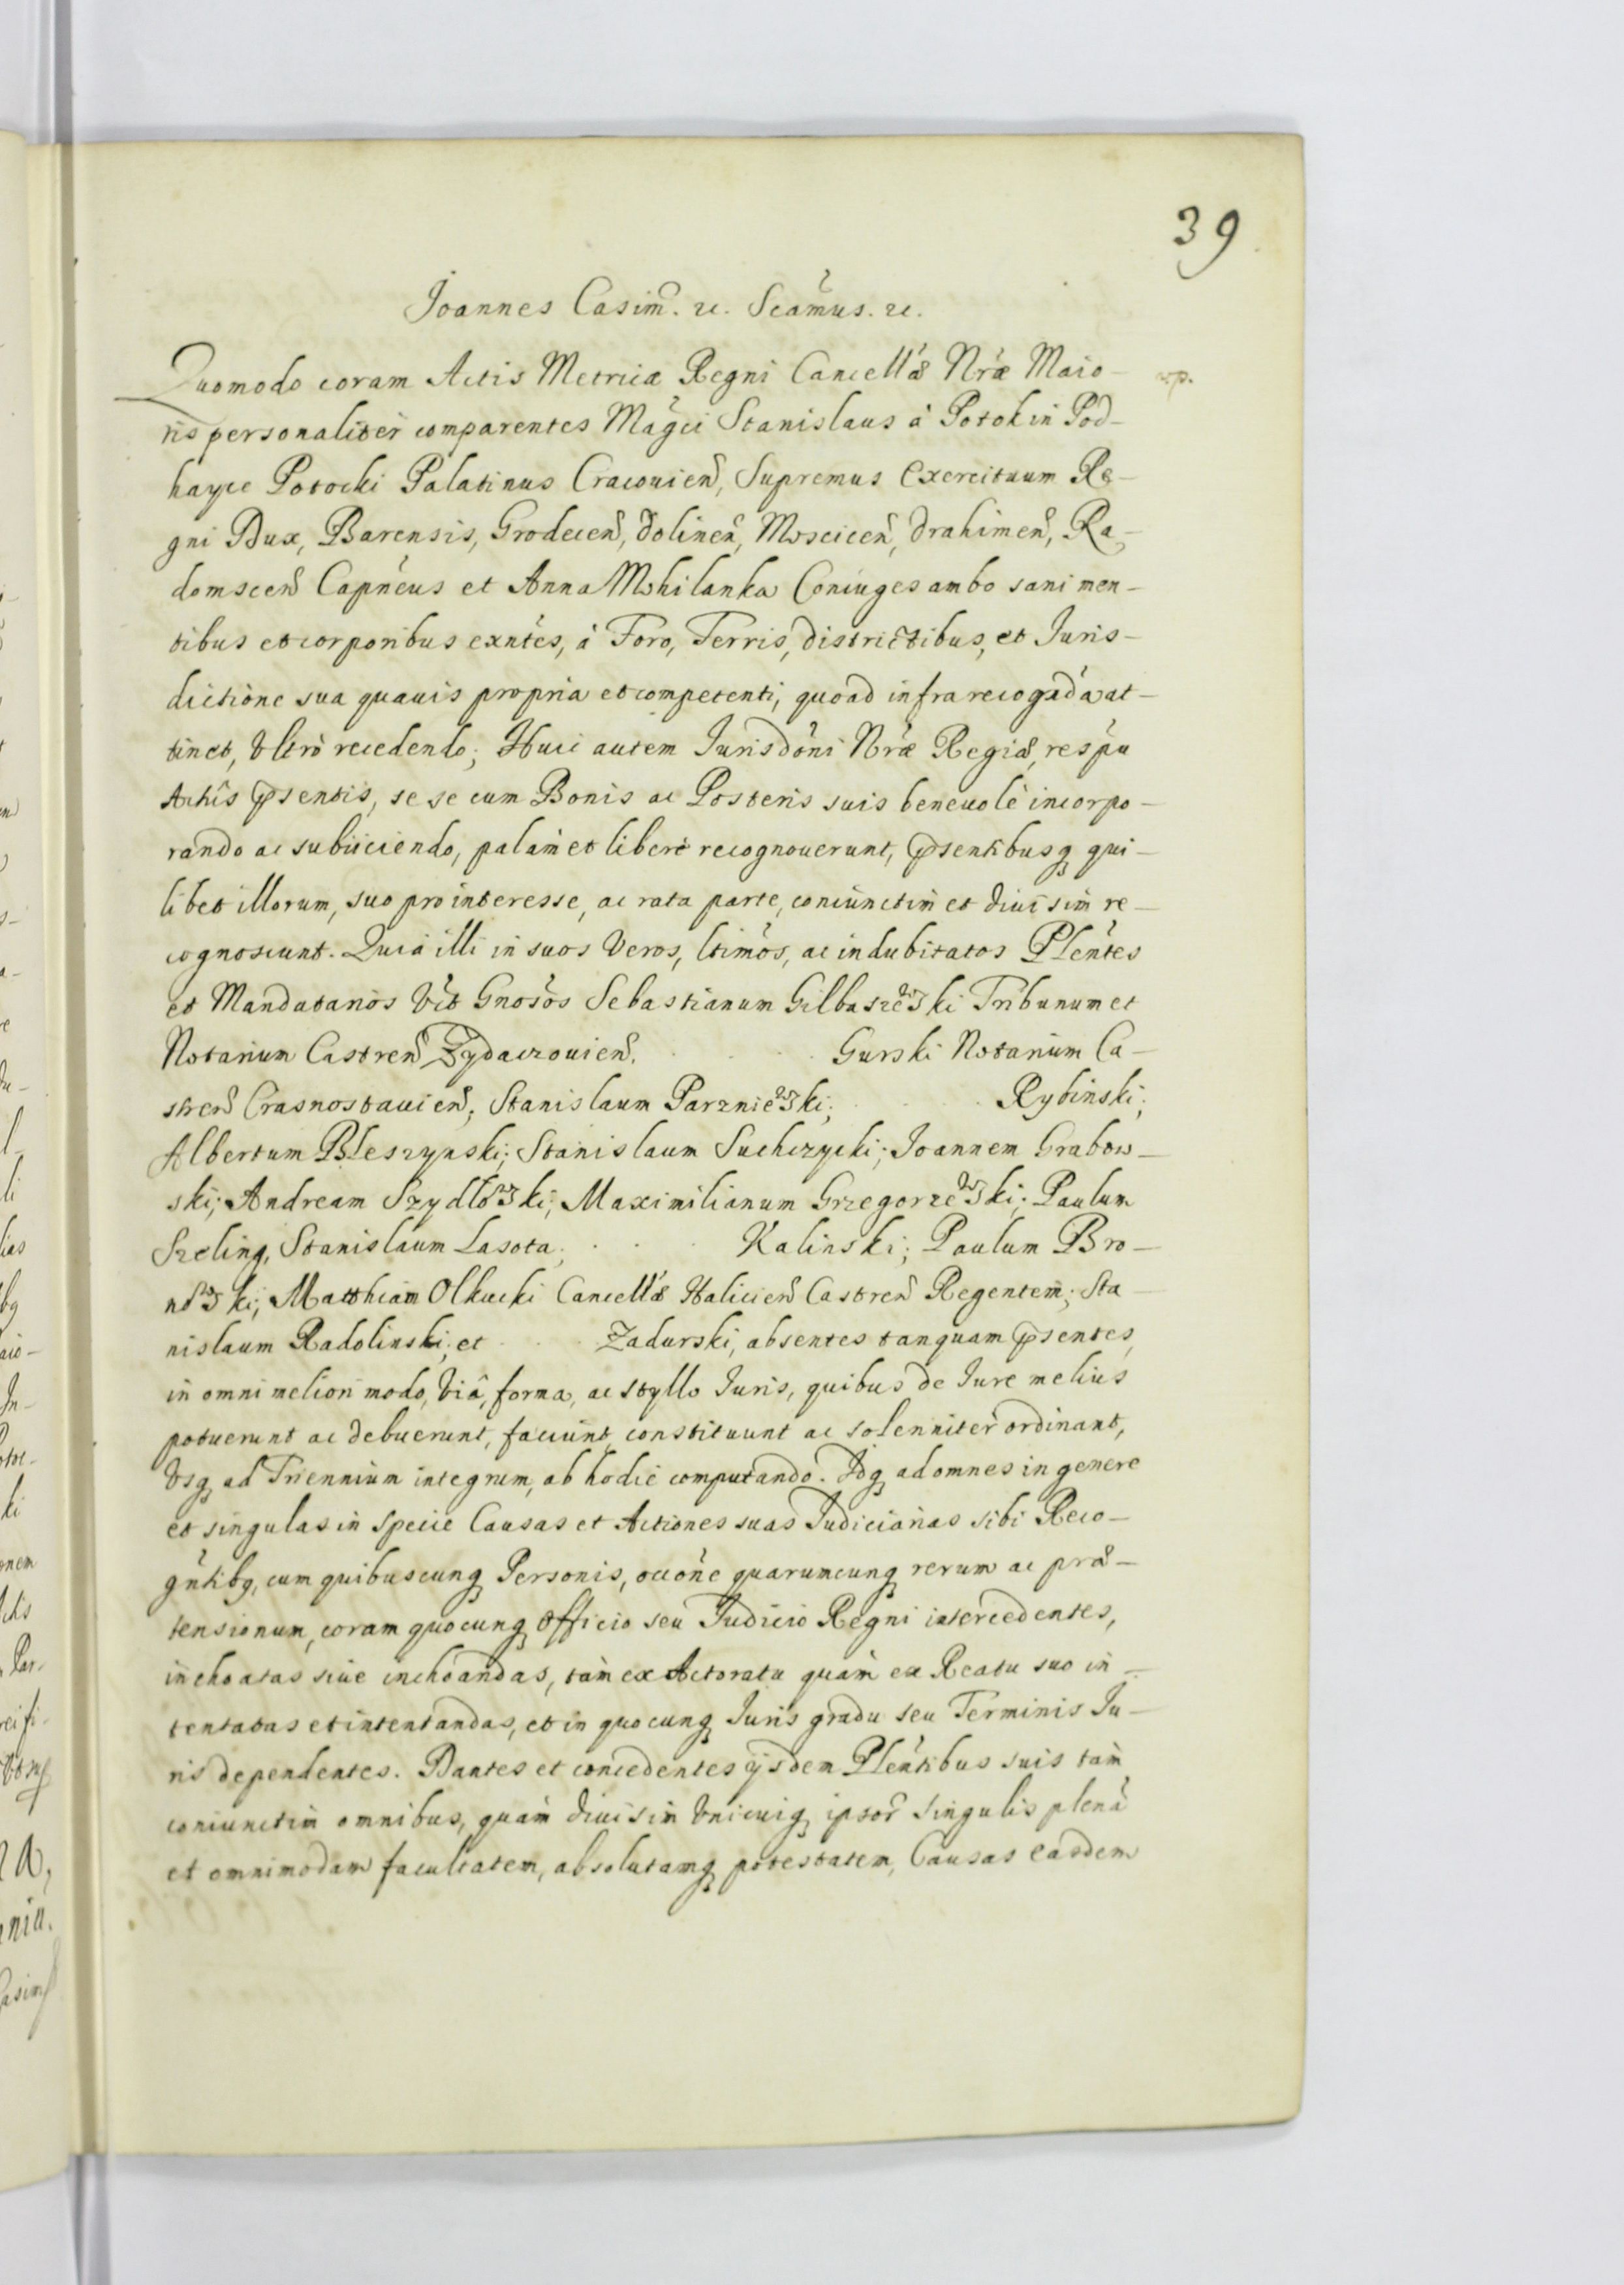 39
Joannes Casim̃. rc. Scãmus. rc.
Quomodo coram Actis Metricæ Regni Cancellã Nræ Maio-
ris personaliter comparentes Mãgci Stanislaus à Potok in Pod-
hayce Potocki Palatinus Cracouień, Supremus Exercituum Re-
gni Dux, Barensis, Grodeceñ, Dolineñ, Mosciceñ, Drahimeñ, Ra-
domsceñ Capñeus et Anna Mohilanka Coniuges ambo sani men-
tibus et corporibus exñtes, à Foro, Terris, districtibus, et Juris-
dictione sua quauis propria et competenti, quoad infra recognda at-
tinet, Vltrò recedendo; Huic autem Jurisdõni Nræ Regiæ, respũ
Actûs p̃sentis, se se cum Bonis ac Posteris suis beneuolè incorpo-
rando ac subijciendo, palàm et liberè recognouerunt, p̃sentibusq qui-
libet illorum, suo pro interesse, ac rata parte, coniunctim et diuisim re-
cognoscunt. Quia illi in suos Veros, ltimos, ac indubitatos Pleñtes
et Mandatarios Vt Gnosos Sebastianum Gilbaszewski Tribunum et
Notarium Castreñ Zydaczouień. Gurski Notarium Ca-
streñ Crasnostauień; Stanislaum Parzniewski; Rybinski;
Albertum Bleszynski; Stanislaum Suchczycki; Joannem Grabow-
ski; Andream Szydłowski; Maximilianum Grzegorzewski; Paulum
Szeling, Stanislaum Lasota; Kalinski; Paulum Bro-
nowski; Matthiam Olkucki Cancellæ Halicień Castreñ Regentem; Sta-
nislaum Radolinski; et Zadurski, absentes tanquam p̃sentes,
in omni meliori modo, Viâ, forma, ac styllo Juris, quibus de Jure melius
potuerunt ac debuerunt, faciunt, constituunt ac solenniter ordinant,
Vsq ad Triennium integrum, ab hodie computando. Idq ad omnes in genere
et singulas in specie Causas et Actiones suas Judiciarias sibi Reco-
gñtibq, cum quibuscunq Personis, occõne quarumcunq rerum ac præ-
tensionum, coram quocunq Officio seu Judicio Regni intercedentes,
inchoatas siue inchoandas, tàm ex Actoratu quàm ex Reatu suo in-
tentatas et intentandas, et in quocunq Juris gradu seu Terminis Ju-
ris dependentes. Dantes et concedentes ijsdem Pleñtibus suis tàm
coniunctim omnibus, quàm diuisim Vnicuiq ipsor̃ singulis plenã
et omnimodam facultatem, absolutamq potestatem, Causas easdem